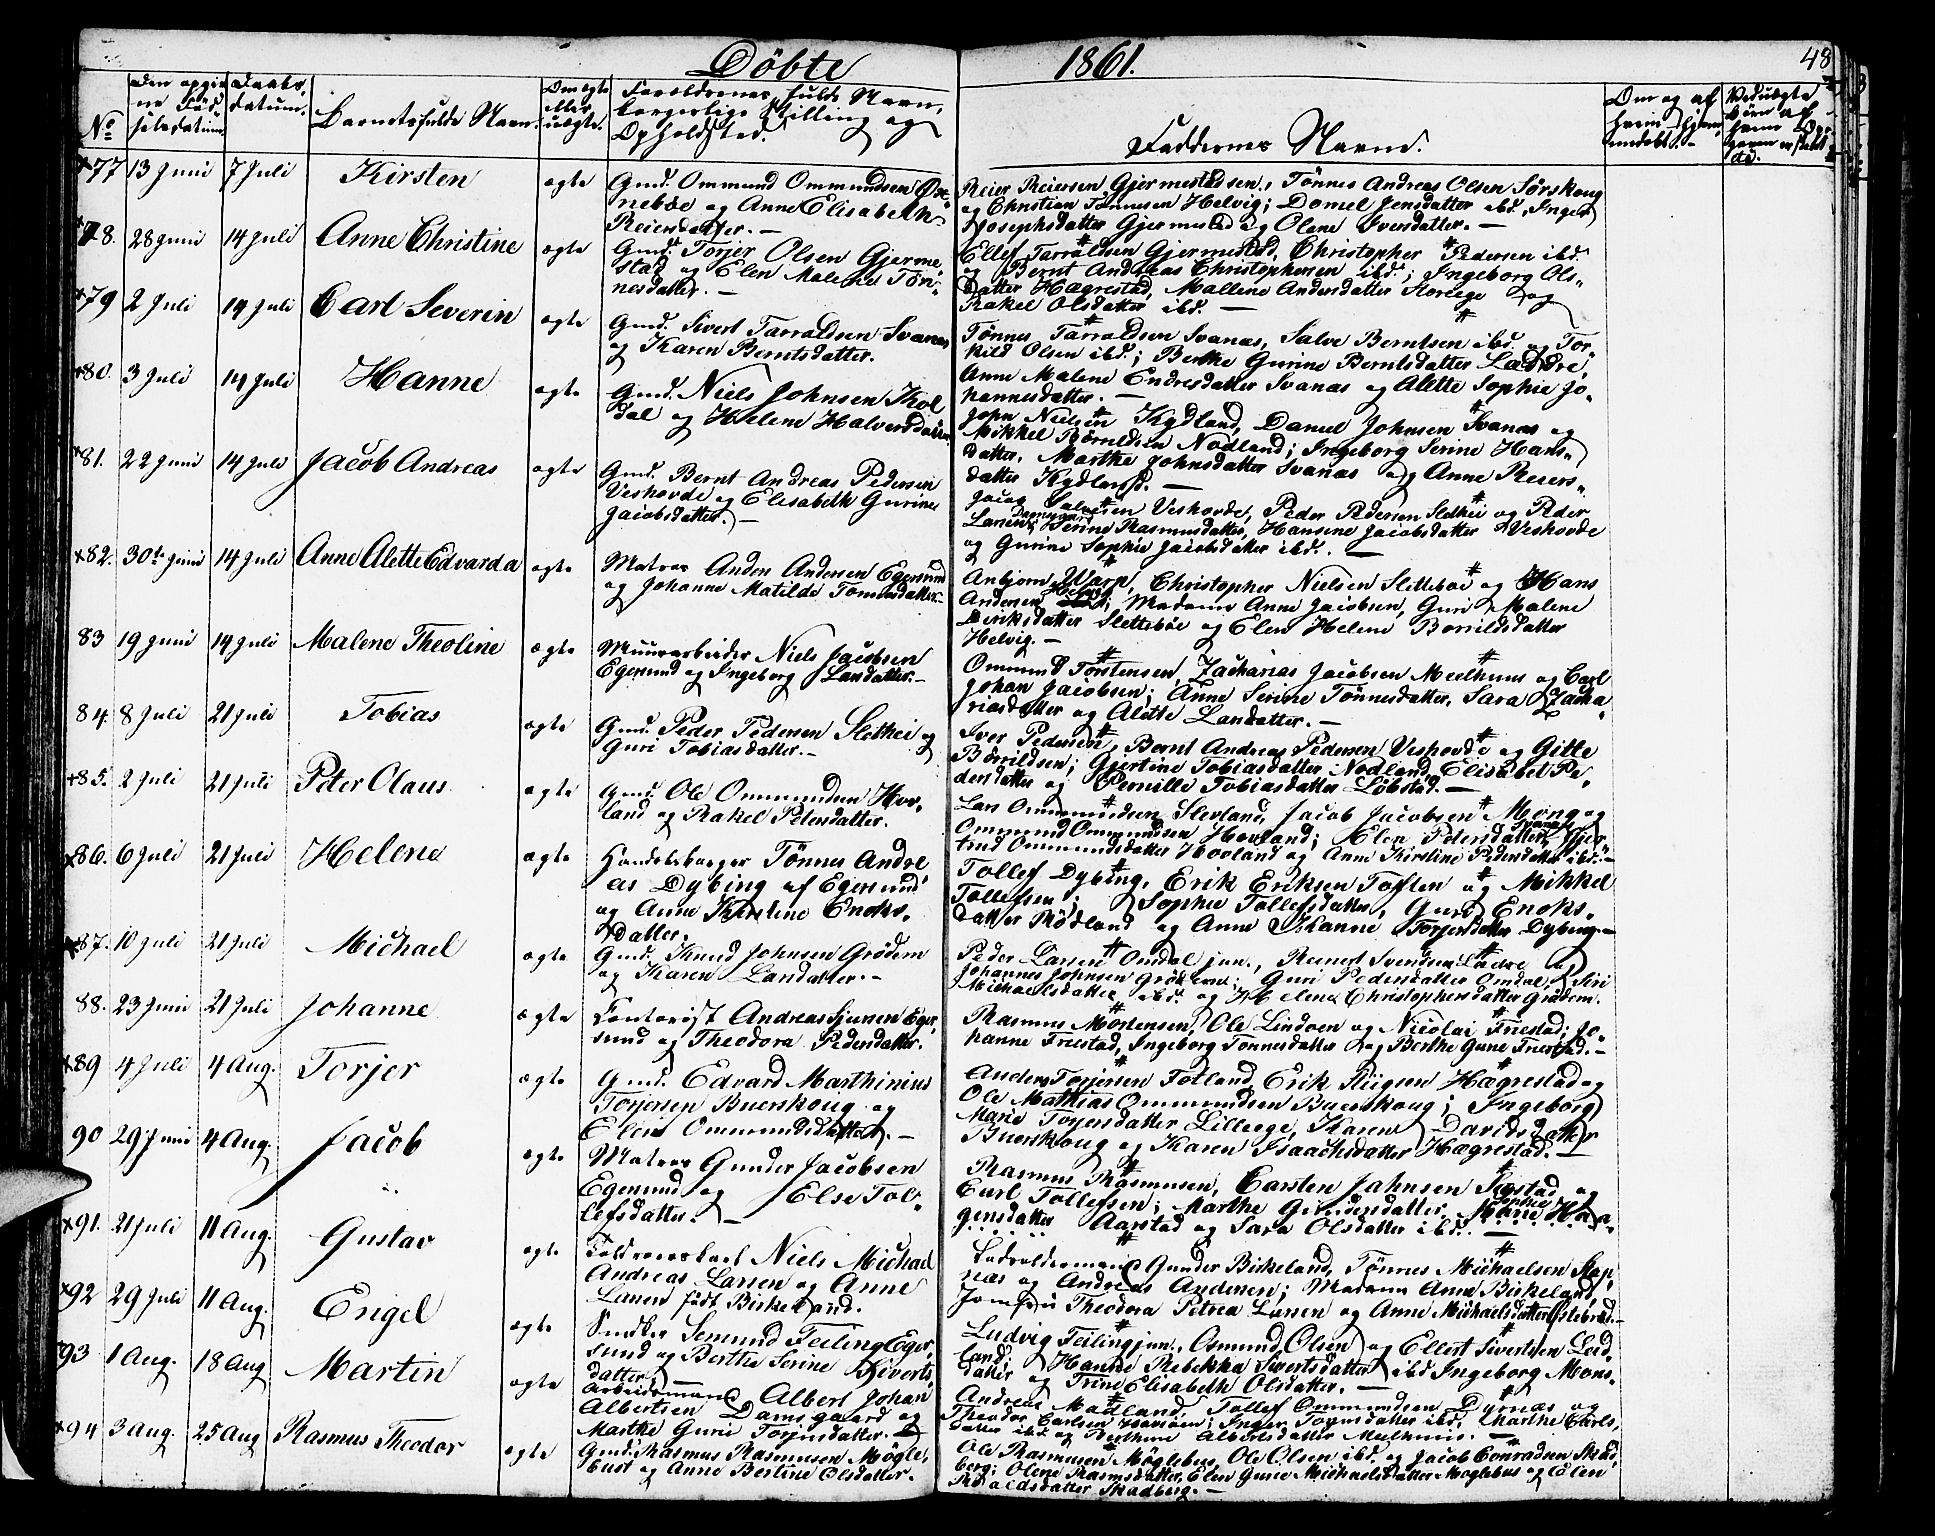 Döbte 1861. 48
No
Den opgiv
ne Föd
selsdatum
Daabs
datum.
Barnets fulde Navn.
Om ægte
eller
uægte.
Forældrenes fulde Navn,
borgerlige Stilling og
Opholdsted.
Faddernes Navne.
Om og af
hvem hjem
medøbt.
77 13 Juni 7 Juli Kirsten ægte
Gmd. Ommund Ommundsen
nebøe og Anne Elisabeth
Reiersdatter.
Reier Reiersen Gjermestadsen, Tönnes Andreas Olsen Sörskoug
og Christian Tönnesen Helvig; Domel Jensdatter ibd., Inger
Josephsdatter Gjermestad og Olene Iversdatter.
78. 28 Juni 14 Juli Anne Christine ægte
Gmd. Torjer Olsen Gjerme
stad og Elen Malene Tön
nesdatter.
Ellef Tarraldsen Gjermestad, Christopher Pedersen ibd.
og Bernt Andreas Christophersen ibd.; Ingeborg Ols
datter Hægrestad, Mallene Andersdatter Storeege og
Rakel Olsdatter ibd.
79 2 Juli 14 Juli Carl Severin ægte
Gmd. Sivert Tarraldsen Svanas
og Karen Berntsdatter.
Tönnes Tarraldsen Svanas, Salve Berntsen ibd. og Tor
kild Olsen ibd.; Berthe Gurine Berntsdatter Lædre,
Anne Malene Endresdatter Svanas og Alette Sophie Jo
hannesdatter.
80. 3 Juli 14 Juli Hanne ægte
Gmd. Niels Johnsen Kol
dal og Helene Halversdatter
John Nielsen Kydland, Daniel Johnsen Svanas og
Mikkel Börildsen Nodland; Ingeborg Serine Hans
datter, Marthe Johnsdatter Svanas og Anne Reiers
datter Kydland.
81. 22 Juni 14 Juli Jacob Andreas ægte
Gmd. Bernt Andreas Pedersen
Veshovde og Elisabeth Gurine
Jacobsdatter.
Jacob Salvesen Veshovde, Peder Pedersen Slethei og Peder
Larsen; Serine Rasmusdatter, Hansine Jacobsdatter Veshovde
og Gurine Sophie Jacobsdatter ibd.
82. 30te Juni 14 Juli Anne Alette Edvarda ægte
Matros Anders Andersen Egersund
og Johanne Matilde Tönnesdatter
Anbjörn Warp, Christopher Nielsen Slettebøe og Hans
Andersen Helvig; Madame Anne Jacobsen, Guri Malene
Diriksdatter Slettebøe og Elen Helene Borrildsdatter
Helvig.
83 19 Juni 14 Juli Malene Theoline ægte
Muurarbeider Niels Jacobsen
Egersund og Ingeborg Larsdatter
Ommund Torstensen, Zacharias Jacobsen Meelhuus og Carl
Johan Jacobsen; Anne Serine Tönnesdatter, Sara Zacha
riasdatter og Alette Larsdatter.
84. 8 Juli 21 Juli Tobias ægte
Gmd. Peder Pedersen Slethei og
Guri Tobiasdatter.
Iver Pedersen, Bernt Andreas Pedersen Veshovde og Gitle
Börrildsen; Gjertine Tobiasdatter Nodland, Elisabet Pe
dersdatter og Pernille Tobiasdatter Löbstad.
85. 2 Juli 21 Juli Peter Olaus ægte
Gmd. Ole Ommundsen Hov
land og Rakel Petersdatter.
Lars Ommundsen Slevland, Jacob Jacobsen Mong og
Ommund Ommundsen Hovland; Elen Petersdatter, Gjer
trud Ommundsdatter Hovland og Anne Kirstine Pedersdatter ibd.
86. 6 Juli 21 Juli Helene ægte
Handelsborger Tönnes Andre
as Dybing af Egersund
og Anne Kirstine Enoks
datter.
Tollef Dybing, Erik Eriksen Toften og Mikkel
Tollefsen; Sophie Tollefsdatter, Guri Enoks
datter Rödland og Anne Hanne Torjersdatter Dybing
87. 10 Juli 21 Juli Michael ægte
Gmd. Knud Johnsen Grödem
og Karen Larsdatter.
Peder Larsen Omdal jun., Reinert Svendsen Lædre og
Johannes Johnsen Grödem; Guri Pedersdatter Omdal, Siri
Michaelsdatter ibd. og Helene Christophersdatter Grödem.
88. 23 Juni 21 Juli Johanne ægte
Contorist Andreas Sjursen Eger
sund og Theodora Pedersdatter.
Rasmus Mortensen, Ole Lindoen og Nicolai Friestad; Jo
hanne Friestad, Ingeborg Tönnesdatter og Berthe Gurie Friestad.
89 4 Juli 4 Aug. Torjer ægte
Gmd. Edvard Marthinius
Torjersen Buerskoug og
Elen Ommundsdatter.
Anders Torjersen Fotland, Erik Riigsen Hægrestad og
Ole Mathias Ommundsen Buerskoug; Ingeborg
Marie Torjersdatter Lilleege, Karen Davidsdatter
Buerskoug og Karen Isaachsdatter Hægrestad.
90 29 Juni 4 Aug. Jacob ægte
Matros Gunder Jacobsen
Egersund og Else Tol
lefsdatter.
Rasmus Rasmussen, Carsten Jahnsen Systad og
Carl Tollefsen; Marthe Gundersdatter, Sophie Haa
gensdatter Aarstad og Sara Olsdatter ibd.
91. 21 Juli 11 Aug. Gustav ægte
Toldroerskarl Niels Michael
Andreas Larsen og Anne
Larsen födt Birkeland.
Ladvolderman Gunder Birkeland, Tönnes Michaelsen Slap
næs og Andreas Andersen; Madame Anne Birkeland,
Jomfru Theodora Petrea Larsen og Anne Michaelsdatter Estebröd.
92 29 Juli 11 Aug. Engel ægte
Snedker Semund Feiling Eger
sund og Berthe Serine Siverts
datter
Ludvig Feiling jun., Osmund Olsen og Ellert Sivertsen Leid
land; Hanne Rebekka Sivertsdatter ibd. Ingeborg Mons
datter og Trine Elisabeth Olsdatter.
93 1 Aug. 18 Aug Martin ægte
Arbeidsmand Albert Johan
Albertsen Damsgaard og
Marthe Gurie Torjersdatter.
Andreas Madland, Tollef Ommundsen Dyrnæs og
Theodor Carlsen Havsöen; Inger Torjersdatter ibd., Marthe Carls
datter ibd. og Albertsdatter Meelhuus.
94 3 Aug. 25 Aug Rasmus Theodor ægte
Gmd. Rasmus Rasmussen Mögle
bust og Anne Bertine Olsdatter.
Ole Rasmussen Möglebus, Ole Olsen ibd. og Jacob Conradsen Skad
berg; Olene Rasmusdatter, Elen Gurie Michaelsdatter Moglebus og Elen
Roaldsdatter Skadberg.